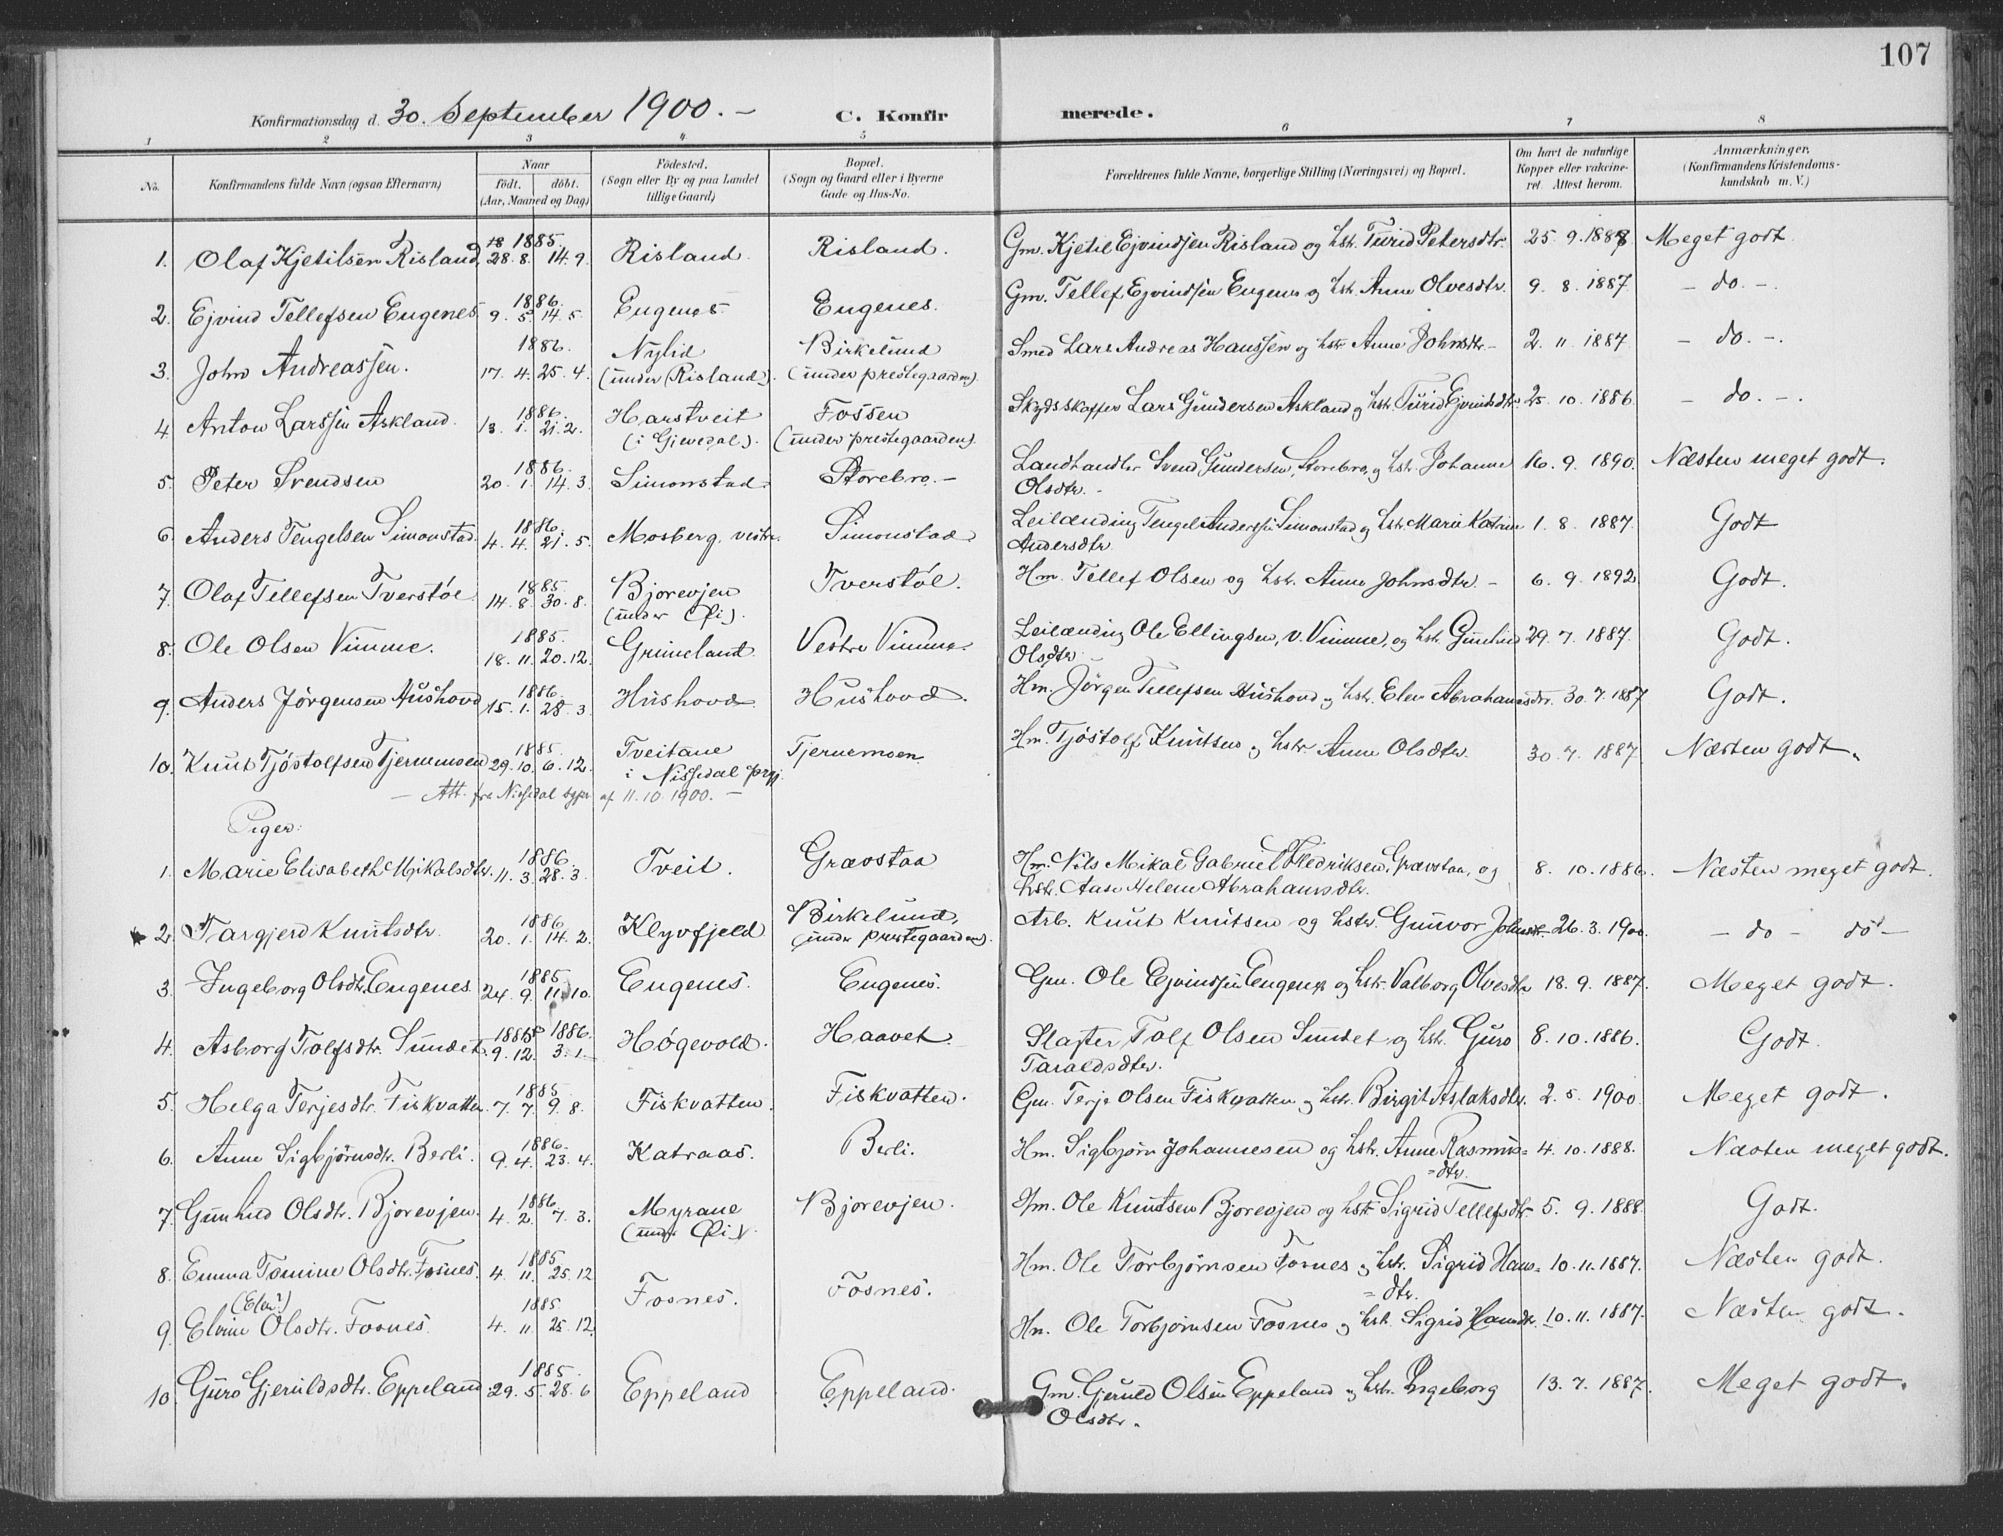 107
Konfirmationsdag d. 30. September 1900. – C. Konfirmerede.
1 2 3 4 5 6 7 8
No. Konfirmandens fulde Navn (ogsaa Efternavn) Naar født. døbt. (Aar, Maaned og Dag) Fødested. (Sogn eller By og paa Landet tillige Gaard) Bopæl. (Sogn og Gaard eller i Byerne Gade og Hus-No.) Forældrenes fulde Navne, borgerlige Stilling (Næringsvei) og Bopæl. Om havt de naturlige Kopper eller vakcineret. Attest herom. Anmærkninger. (Konfirmandens Kristendomskundskab m. V.)
1. Olaf Kjetilsen Risland 1885 28. 8. 14. 9. Risland. Risland. Gm. Kjetil Ejvindsen Risland og hstr. Turid Petersdtr. 25. 9. 1888 Meget godt
2. Ejvind Tellefsen Eugenes 1886. 9. 5. 14. 5. Eugenes Eugenes. Gm. Tellef Ejvindsen Eugenes og hstr. Anne Olvesdtr. 9. 8. 1887 – do. –.
3. John Andreassen. 1886. 17. 4. 25. 4. Nylid (under Risland). Birkelund (under prestegaarden). Smed Lars Andreas Hanssen og hstr. Anne Johnsdtr – 2. 11. 1887 – do. –.
4 Anton Larssen Askland. 1886. 13. 1. 21. 2. Harstveit (i Gjevedal). Fossen (under prestegaarden). Skydsskaffer Lars Gundersen Askland og hstr. Turid Ejvindsdtr. 25. 10. 1886. – do. –.
5. Peter Svendsen 1886. 20. 1. 14. 3. Simonstad Storebro. – Landhandler Svend Gundersen, Storebro, og hstr. Johanne Olsdtr. – 16. 9. 1890. Næsten meget godt.
6. Anders Tengelsen Simonstad. 1886. 4. 4. 21. 5. Mosberg, vestre. Simonstad Leilænding Tengel Anderssen Simonstad og hstr. Marie Katrine Andersdtr. 1. 8. 1887. Godt
7. Olaf Tellefsen Tverstøl 1885 14. 8. 30. 8. Bjorevjen (under Øi). Tverstøl. Hm. Tellef Olsen og hstr. Anne Johnsdtr. – 6. 9. 1892 Godt.
8. Ole Olsen Vimme. 1885. 18. 11. 20. 12. Grimeland Vestre Vimme. Leilænding Ole Ellingsen, v. Vimme, og hstr. Gunhild Olsdtr. 29. 7. 1887. Godt.
9. Anders Jørgensen Hushovd 1886. 15. 1. 28. 3. Hushovd Hushovd. Hm. Jørgen Tellefsen Hushovd og hstr. Elen Abrahamsdtr. 30. 7. 1887 Godt.
10. Knut Tjøstolfsen Tjernemoen 1885. 29. 10. 6. 12. Tveitane i Nissedal prgj. Tjernemoen. Hm. Tjøstolf Knutsen og hstr. Anne Olsdtr. 30. 7. 1887 Næsten godt.
– Att. fra Nissedal af 11. 10. 1900. –
Piger:
1. Marie Elisabeth Mikalsdtr. 1886. 11. 3. 28. 3. Tveit. Grævstaa Hm. Nils Mikal Gabriel Fredriksen, Grævstaa, og hstr. Aase Helene Abrahamsdtr. 8. 10. 1886. Næsten meget godt.
2. Targjerd Knutsdtr. 1886 20. 1. 14. 2. Klyvfjeld Birkelund, (under prestegaarden). Arb. Knut Knutsen og hstr. Gunvor Johnsdtr. 26. 3. 1900 – do – do –
3. Ingeborg Olsdtr. Eugenes. 1885 24. 9. 11. 10. Eugenes. Eugenes. Gm. Ole Ejvindsen Eugenes og hstr. Valborg Olvesdtr. 18. 9. 1887. Meget godt.
4. Asborg Tolfsdtr. Sundet 1885 1886. 9. 12. 3. 1. Høgevold. Haavet. Slagter Tolf Olsen Sundet og hstr. Guro Taraldsdtr. 8. 10. 1886. Godt.
5. Helga Terjesdtr. Fiskvatten 1885 7. 7. 9. 8. Fiskvatten. Fiskvatten. Gm. Terje Olsen Fiskvatten og hstr. Birgit Aslaksdtr. 2. 5. 1900 Meget godt.
6. Anne Sigbjørnsdtr. Berli. 1886. 9. 4. 23. 4. Katraas. Berli. Hm. Sigbjørn Johannesen og hstr. Anne Rasmus=dtr. 4. 10. 1888. Næsten meget godt.
7. Gunhild Olsdtr. Bjorevjen. 1886. 4. 2. 7. 3. Myrane (under Øi). Bjorevjen. Hm. Ole Knutsen Bjorevjen og hstr. Sigrid Tellefsdtr. 5. 9. 1888. Godt.
8. Emma Tomine Olsdtr. Fosnes. 1885 4. 11. 25. 12 Fosnes. Fosnes. Hm. Ole Torbjørnsen Fosnes og hstr. Sigrid Hans=dtr. 10. 11. 1887. Næsten godt.
9. Elvine Olsdtr. Fosnes. 1885 4. 11. 25. 12. Hm. Ole Torbjørnsen Fosnes og hstr. Sigrid Hansdtr. 10. 11. 1887. Næsten godt.
10. Guro Gjeruldsdtr. Eppeland 1885. 29. 5. 28. 6 Eppeland Eppeland. Gm. Gjeruld Olsen Eppeland og hstr. Ingeborg Olsdtr. 13. 7. 1887. Meget godt.